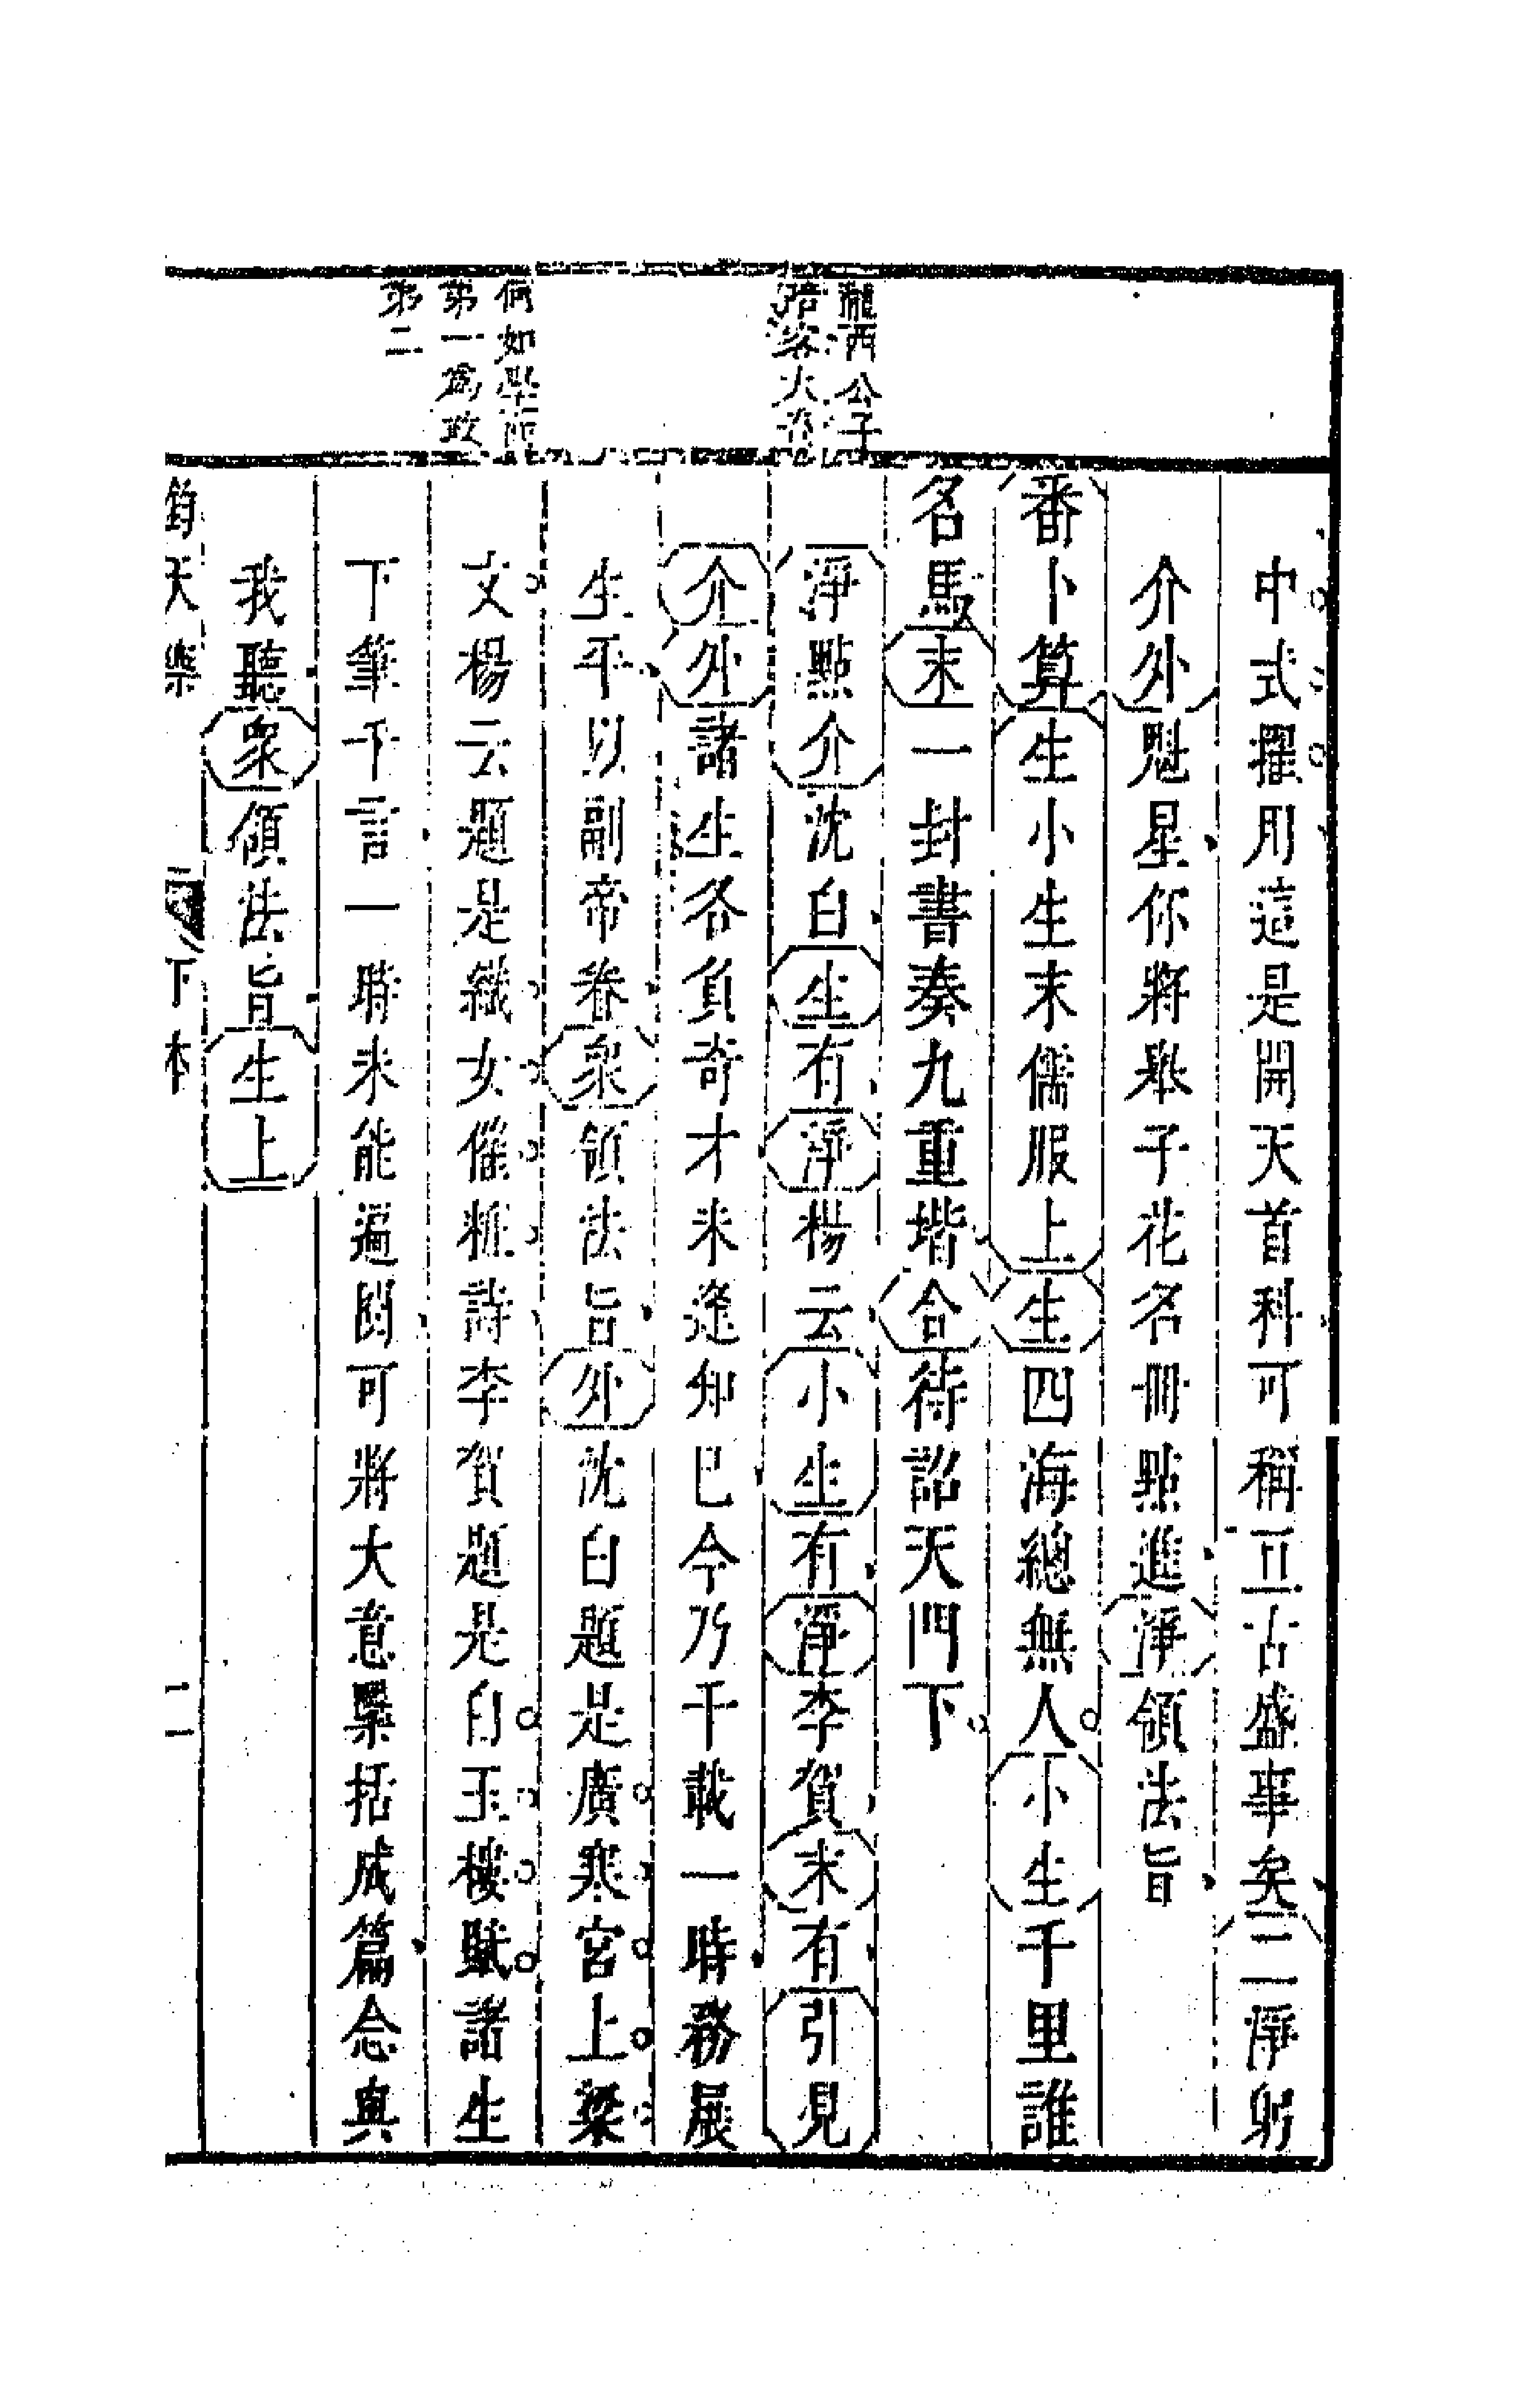 隴西公子
壻家大
何如學而
第一爲政
第二
中式擢用這是開天首科可稱亘古盛事矣二淨躬
介外魁星你將舉子花名冊點進淨領法旨
番卜算生小生末儒服上生四海總無人小生千里誰
名馬末一封書奏九重堦合待詔天門下
淨點介沈白生有淨楊云小生有淨李賀末有引見
介外諸生各負奇才未逢知己今乃千載一時務展
生平以副帝眷眾領法旨外沈白題是廣寒宮上梁
文楊云題是織女催粧詩李賀題是白玉樓賦諸生
下筆千言一時未能遍閱可將大意檃括成篇念與
我聽眾領法旨生上
鈞天樂
下本
二